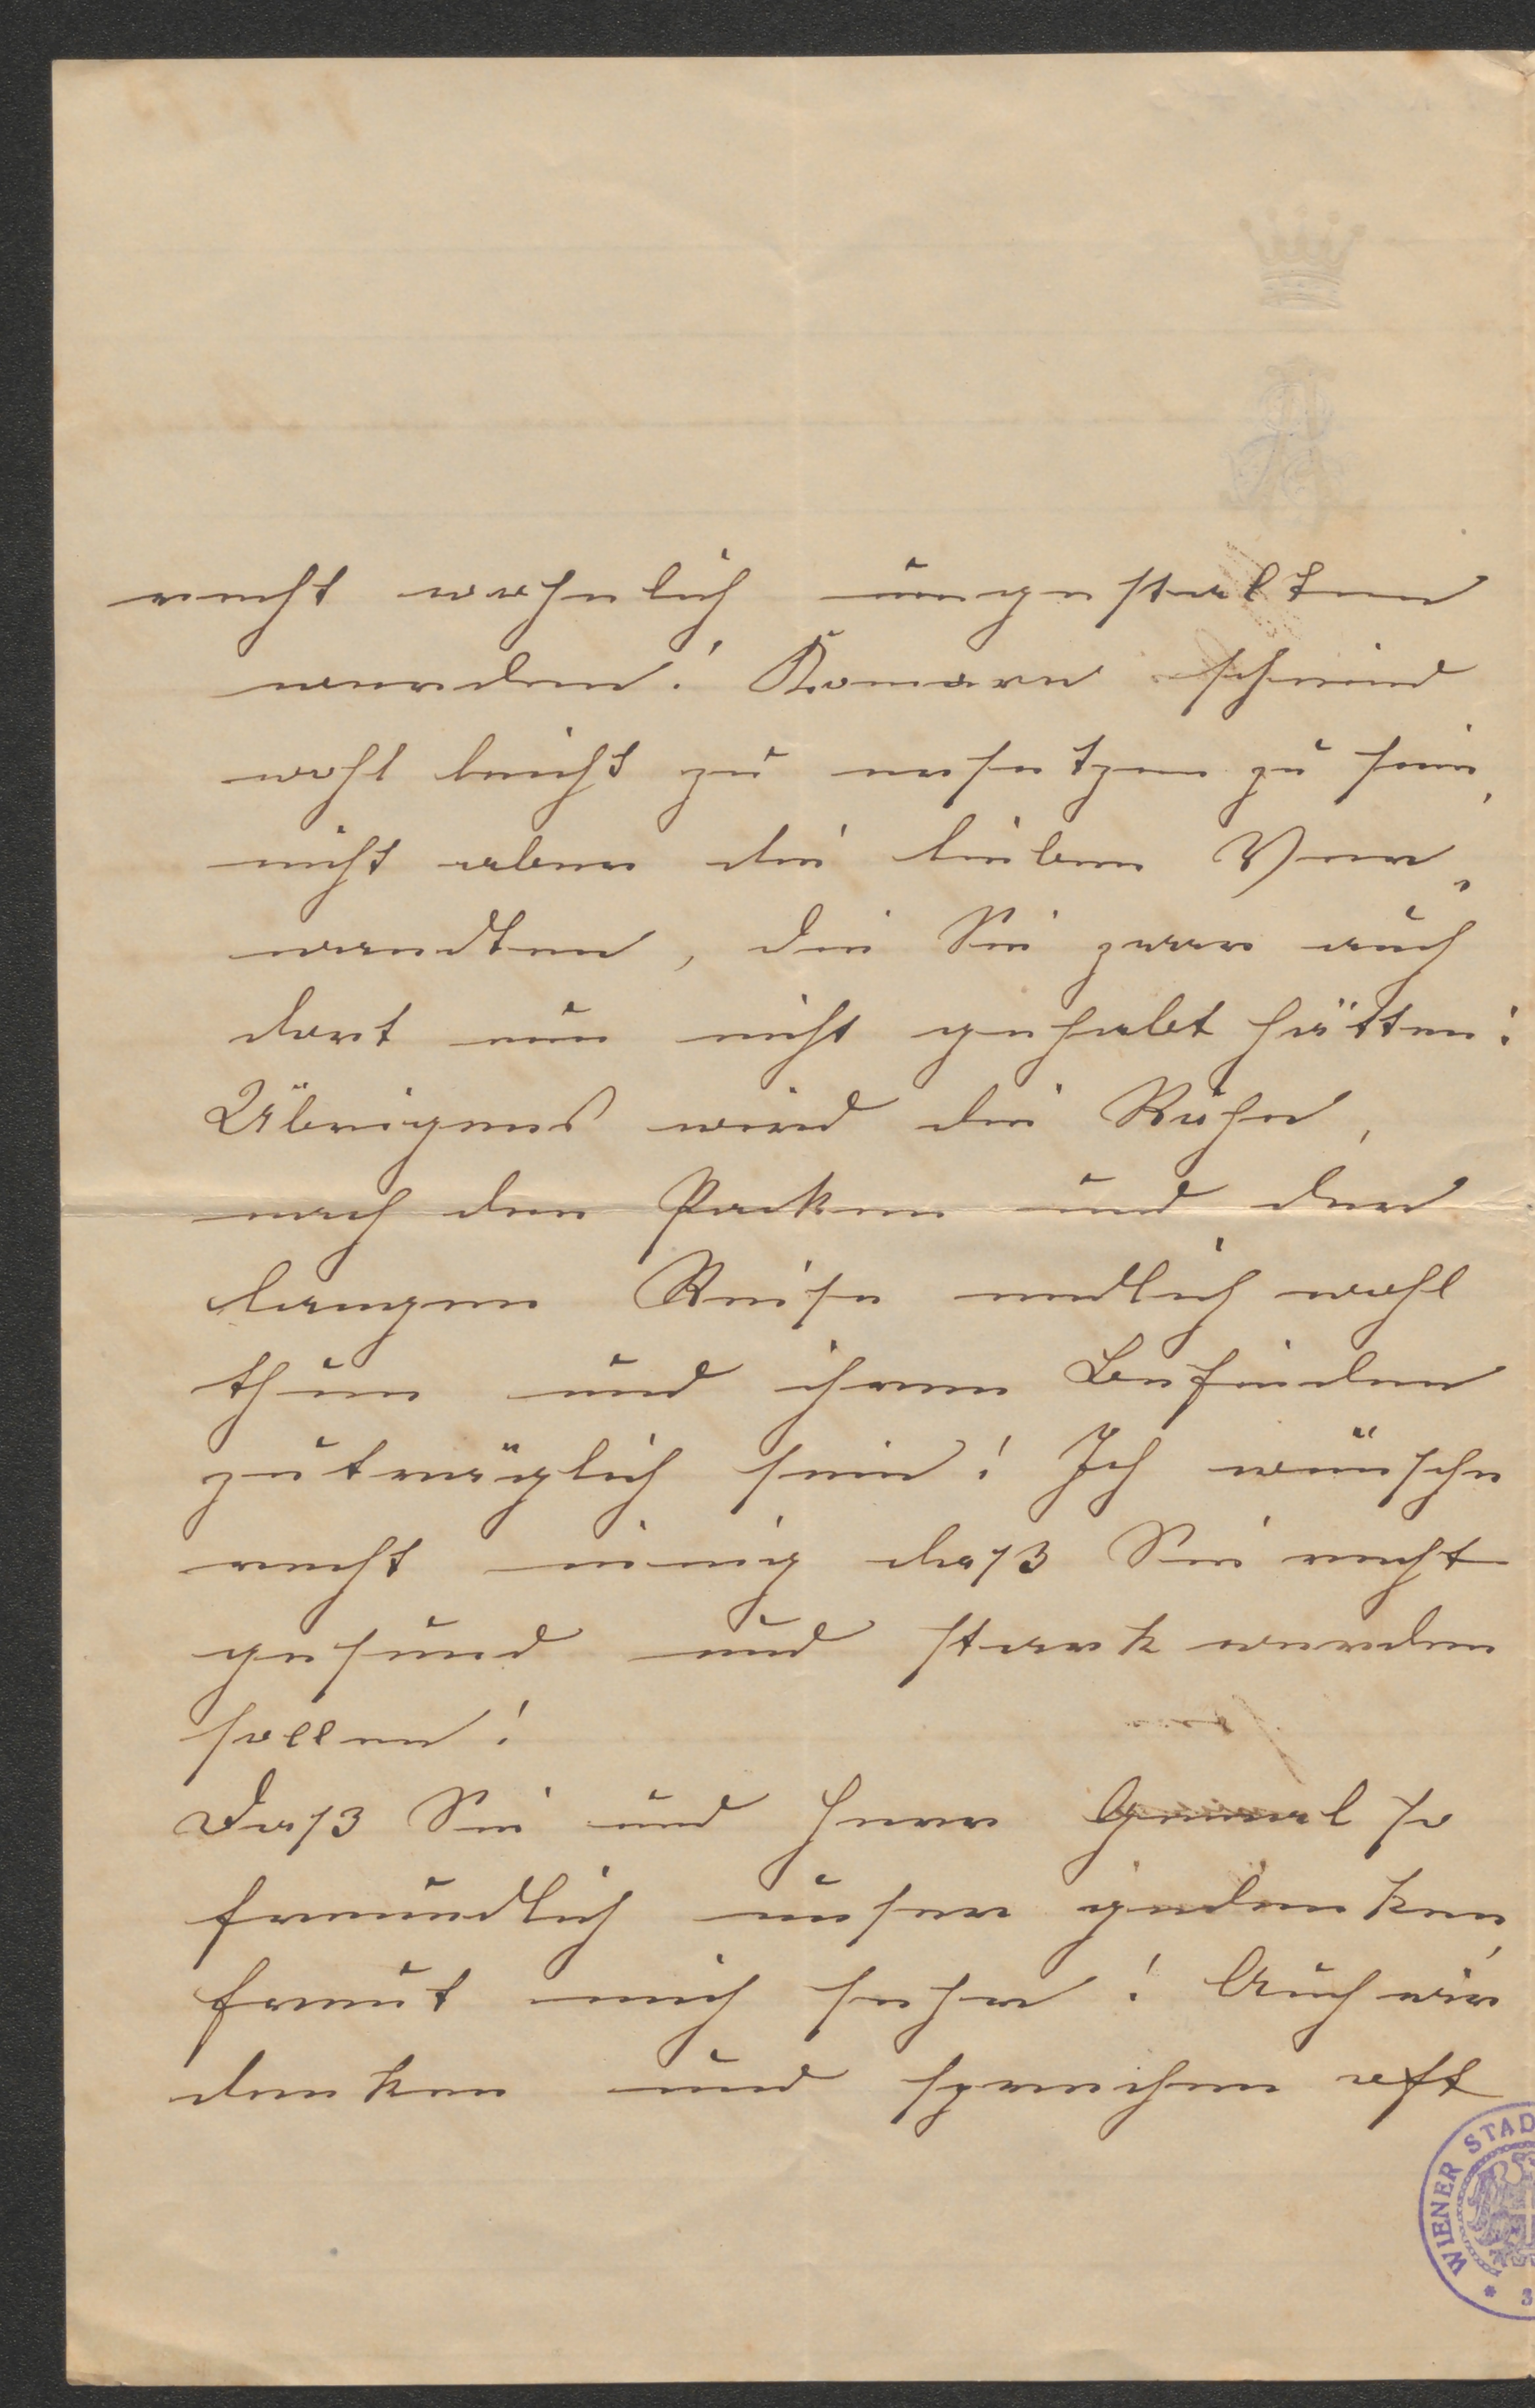 recht wohnlich umgestalten
werden! Komorn scheind
wohl leicht zu ersetzen zu sein,
nicht aber die lieben Ver„
wandten, die Sie zwar auch
dort nun nicht gehabt hätten!
Übrigens wird die Ruhe,
nach den Packen und der
langen Reise endlich wohl
thun und ihrem Befinden
zuträglich sein! Ich wünsche
recht innig daß Sie recht
gesund und stark werden
sollen!
Daß Sie und Herr General so
freundlich unser gedenken,
freut mich sehr! Auch wir
denken und sprechen oft
WIENER STAD
* 3